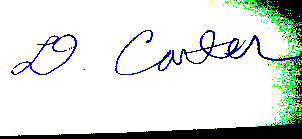 D. Carter